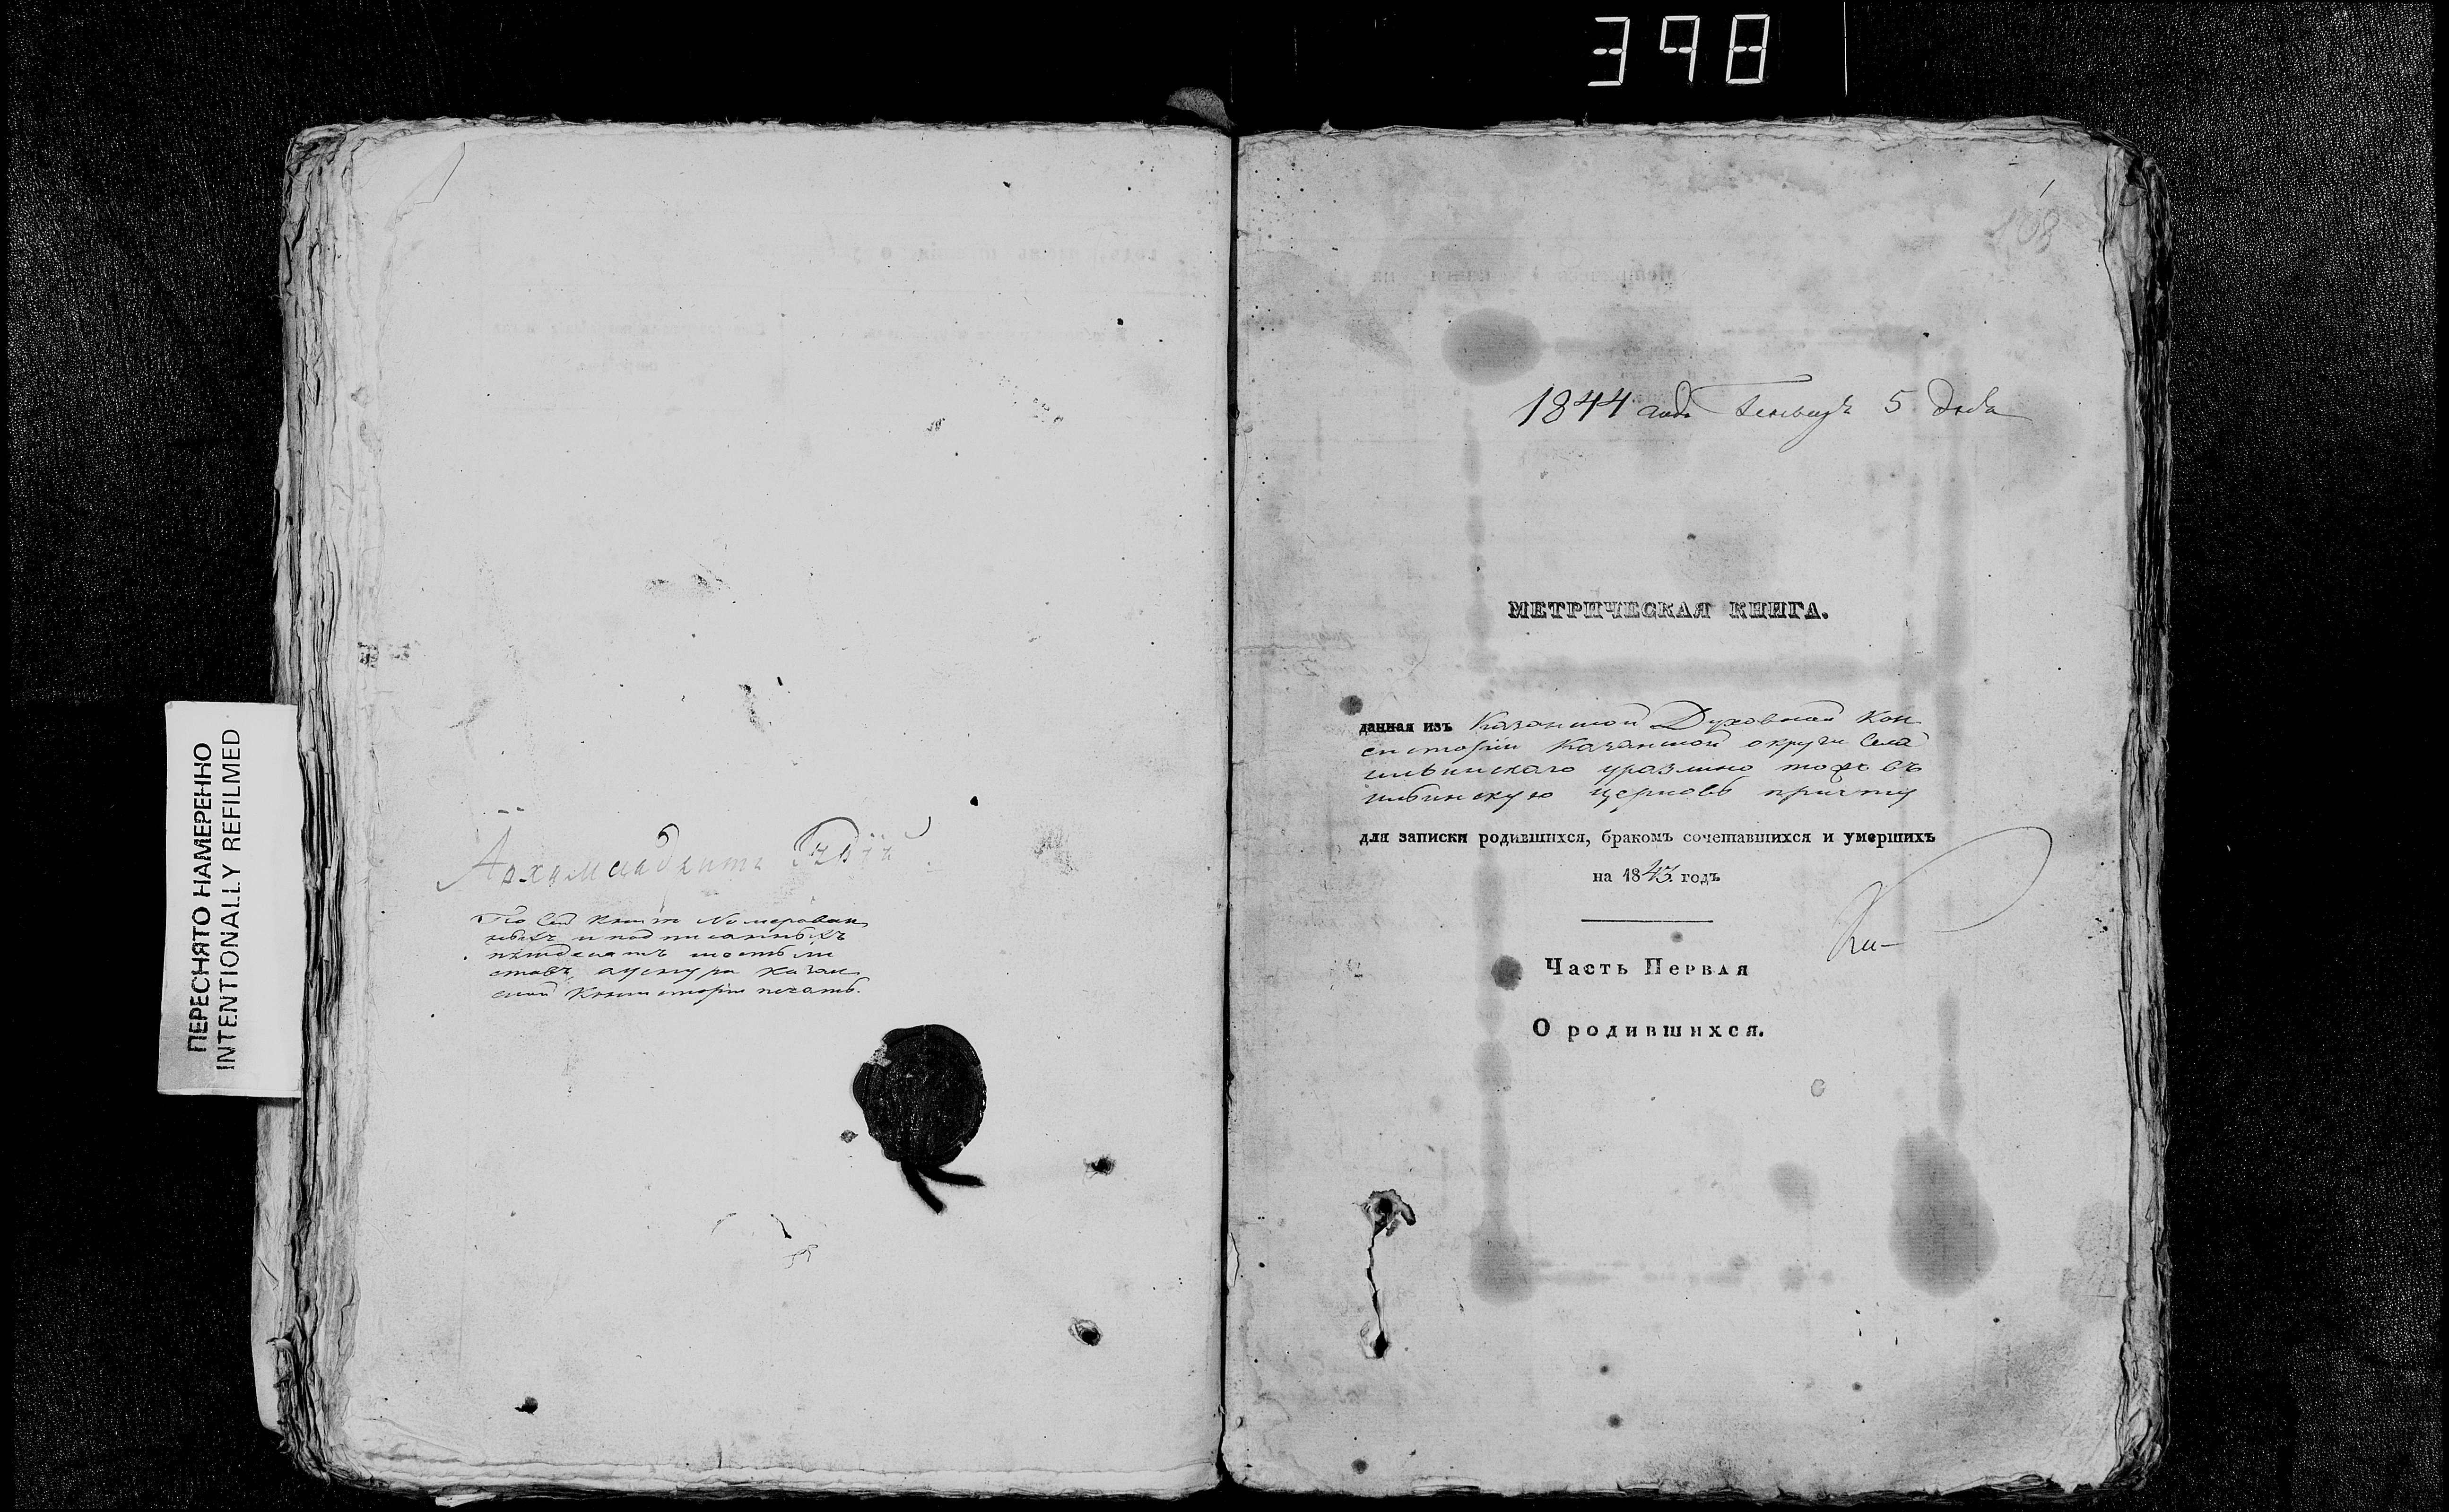 398
ПЕРЕСНЯТО НАМЕРЕННО
INTENTIONALLY REFILMED
Архимандритъ
По сей книге Номерован
ныхъ и подписанныхъ
пятдесятъ шесть ли
стовъ Казан
ской Консисторіи печать.
168
1844 года Генваря 5 дня
МЕТРИЧЕСКАЯ КНИГА.
данная изъ Казанской Духовной Кон
систоріи Казанской округи села
ильинскаго тожъ въ
ильинскую церковь причту
для записки родившихся, бракомъ сочетавшихся и умершихъ
на 1843 годъ
Часть Первая
О родившихся.